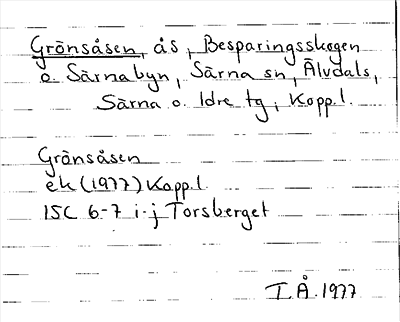 Gränsåsen, ås, Besparingsskogen
o. Särnabyn, Särna sn, Älvdals,
Särna o. Idre tg, Kopp. l.
Gränsåsen
ek (1977) Kopp. l.
15C 6-7 i-j Torsberget
T.Å. 1977